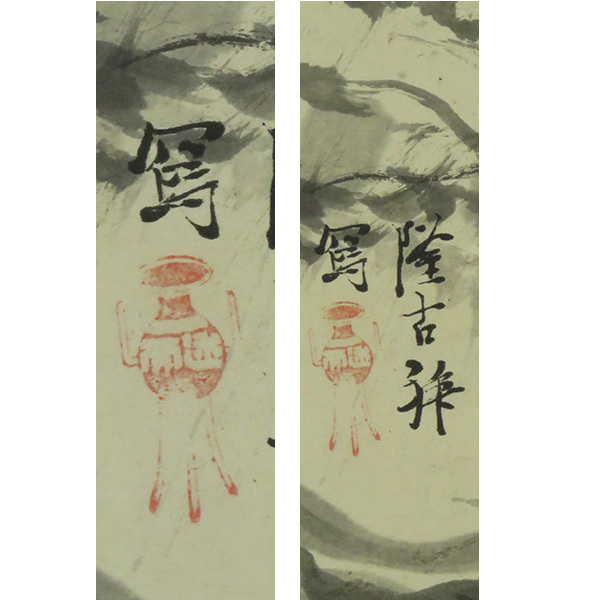 寫
隆古
寫